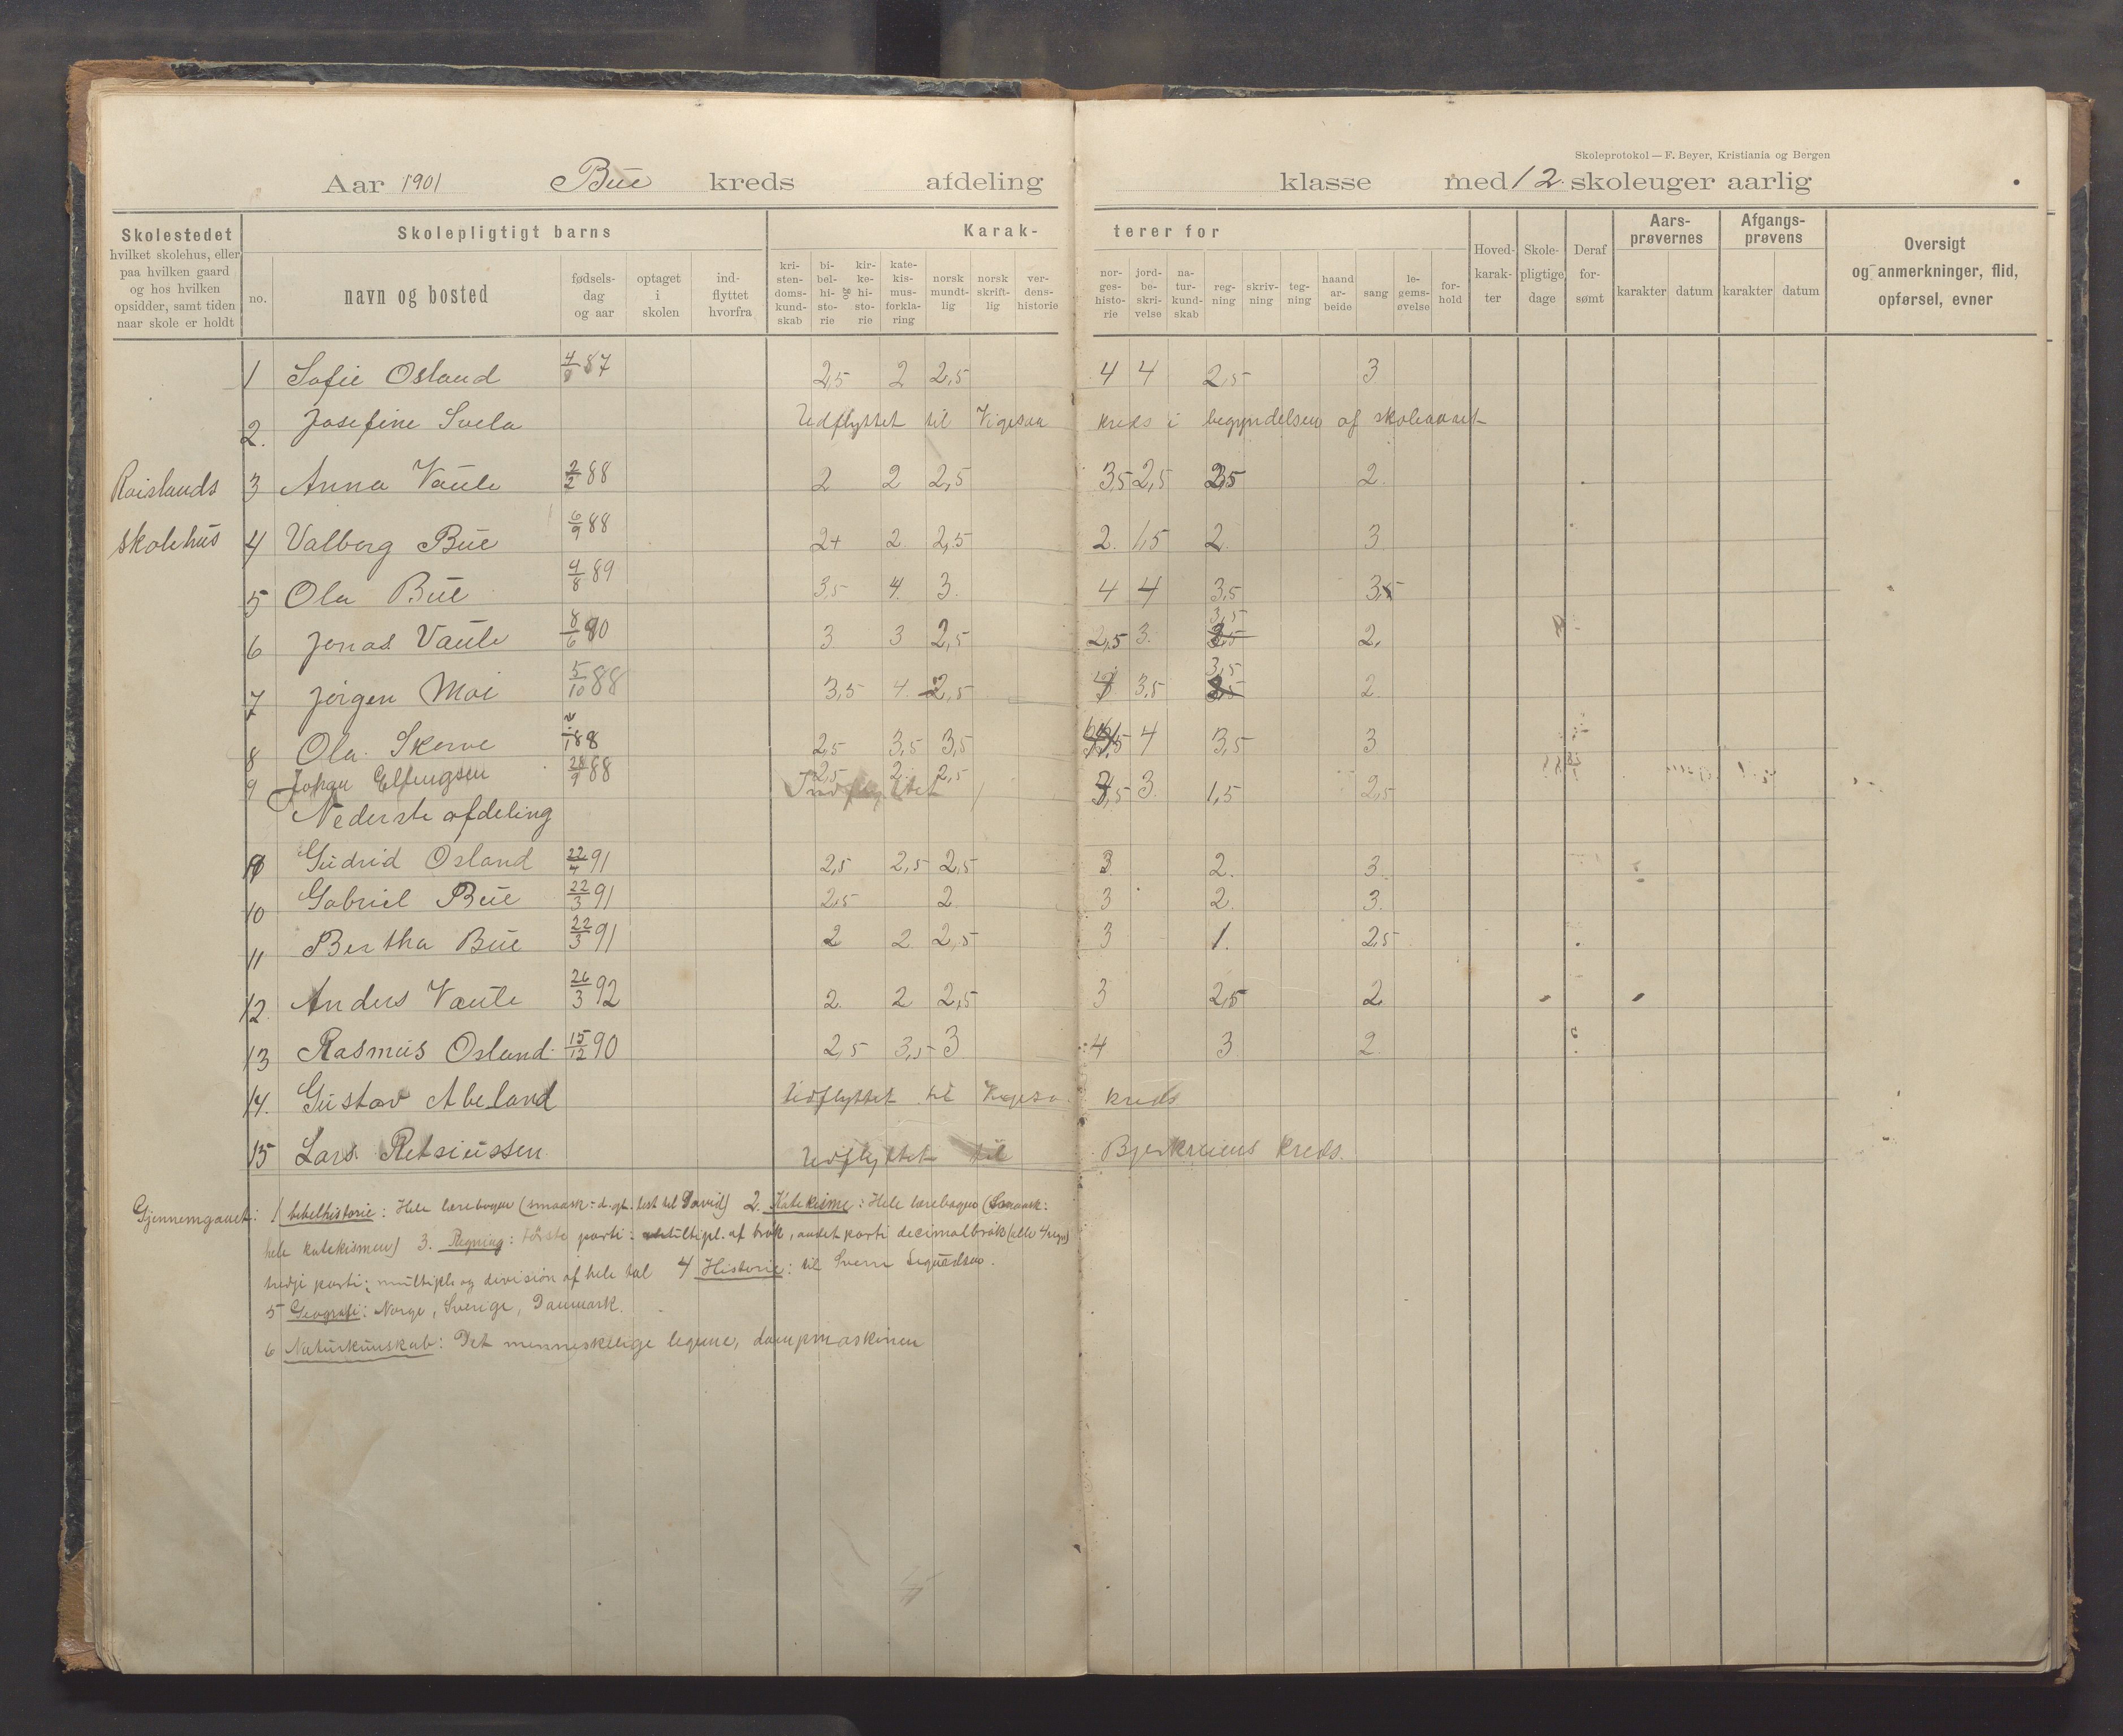 Skoleprotokol — F. Beyer, Kristiania og Bergen
Aar 1901 Bue kreds afdeling klasse med 12 skoleuger aarlig
Skolestedet
hvilket skolehus, eller
paa hvilken gaard
og hos hvilken
opsidder, samt tiden
naar skole er holdt
Skolepligtigt barns
no.
navn og bosted
fødsels-
dag
og aar
optaget
i
skolen
ind-
flyttet
hvorfra
Karak- terer for
kri-
sten-
doms-
kund-
skab
bi-
bel-
hi-
sto-
rie
og
kir-
ke-
hi-
sto-
rie
kate-
kis-
mus-
forkla-
ring
norsk
mundt-
lig
norsk
skrift-
lig
ver-
dens-
historie
nor-
ges-
histo-
rie
jord-
be-
skri-
velse
na-
tur-
kund-
skab
reg-
ning
skriv-
ning
teg-
ning
haand
ar-
beide
sang
le-
gems-
øvelse
for-
hold
Hoved-
karak-
ter
Skole-
pligtige
dage
Deraf
for-
sømt
Aars-
prøvernes
karakter datum
Afgangs-
prøvens
karakter datum
Oversigt
og anmerkninger, flid,
opførsel, evner
1 Sofie Osland 4/8 87 2,5 2 2,5 4 4 2,5 3
2. Josefine Svela Udflyttet til Vigesaa kreds i begyndelsen af skoleaaret
Roislands 3 Anna Vaule 2/2 88 2 2 2,5 3,5 2,5 2,5 2.
skolehus 4 Valborg Bue 6/9 88 2+ 2. 2,5 2. 1,5 2. 3
5 Ola Bue 4/8 89 3,5 4. 3. 4 4 3,5 3,5
6 Jonas Vaule 8/6 90 3 3 2,5 2,5 3. 3,5 2.
7 Jørgen Moi 5/10 88 3,5 4. 2,5 3,5 3,5 2.
8 Ola Skerve 88 2,5 3,5 3,5 4 3,5 3
9 Johan Ellingsen 28/9 88 2,5 2. 2,5 3. 1,5 2,5
Indflyttet
Nederste afdeling
Gudrid Osland 22/7 91 2,5 2,5 2,5 3 2. 3.
10 Gabriel Bue 22/3 91 2,5 2 3 2. 3.
11 Bertha Bue 22/3 91 2 2. 2,5 3 1. 2,5
12. Anders Vaule 26/3 92 2. 2 2,5 3 2,5 2
13 Rasmus Osland 15/12 90 2,5 3,5 3 4 3 2.
14. Gustav Abeland Udflyttet til Vigesa kreds
15 Lars Retsiussen Udflyttet til Bjerkreims Kreds.
Gjennemgaaet: 1 bibelhistorie: Hele lærebogen (smaask: d. gt. test til David) 2. Katekisme: Hele lærebogen (Smaask:
hele katekismen) 3. Regning: første parti: multipl. af brøk, andet parti decimalbrøk (alle 4 regn)
tredje parti; multipl. og division af hele tal 4 Historie: til Sverre Sigurdson.
5 Geografi: Norge, Sverige, Danmark.
6 Naturkunskab: Det menneskelige legeme, dampmaskinen